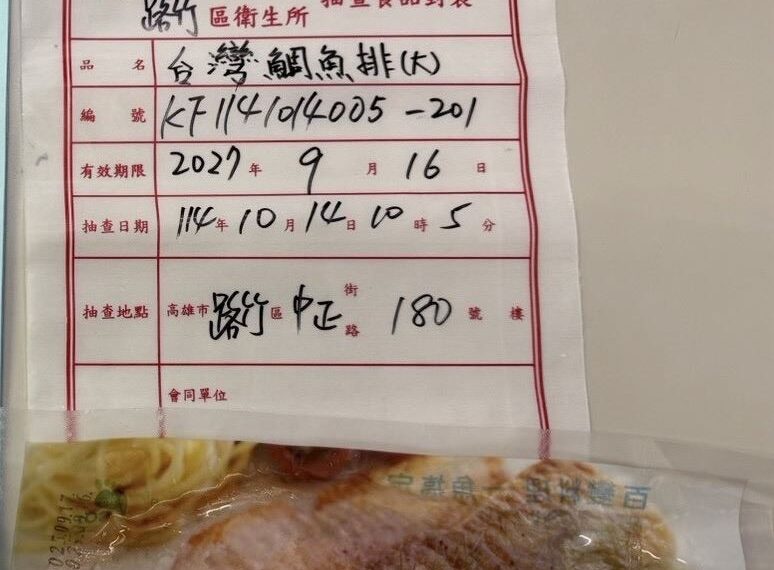 路竹區衛生所 抽查食品封袋
品名 台灣鯛魚排(大)
編號 KF1141014005-201
有效期限 2027年9月16日
抽查日期 114年10月14日10時5分
抽查地點 高雄市路竹區中正街路180號樓
會同單位